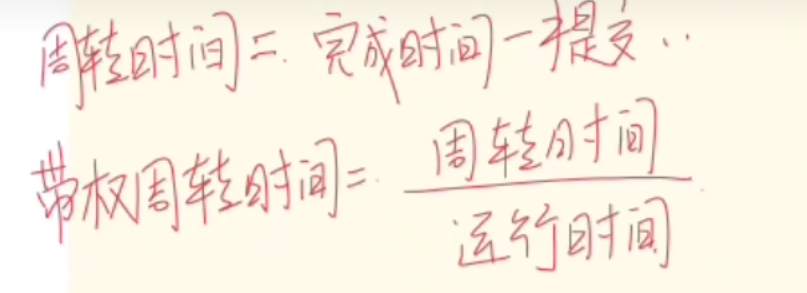 周转时间 = 完成时间 - 提交..
带权周转时间 = 周转时间 / 运行时间